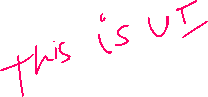 This is UI